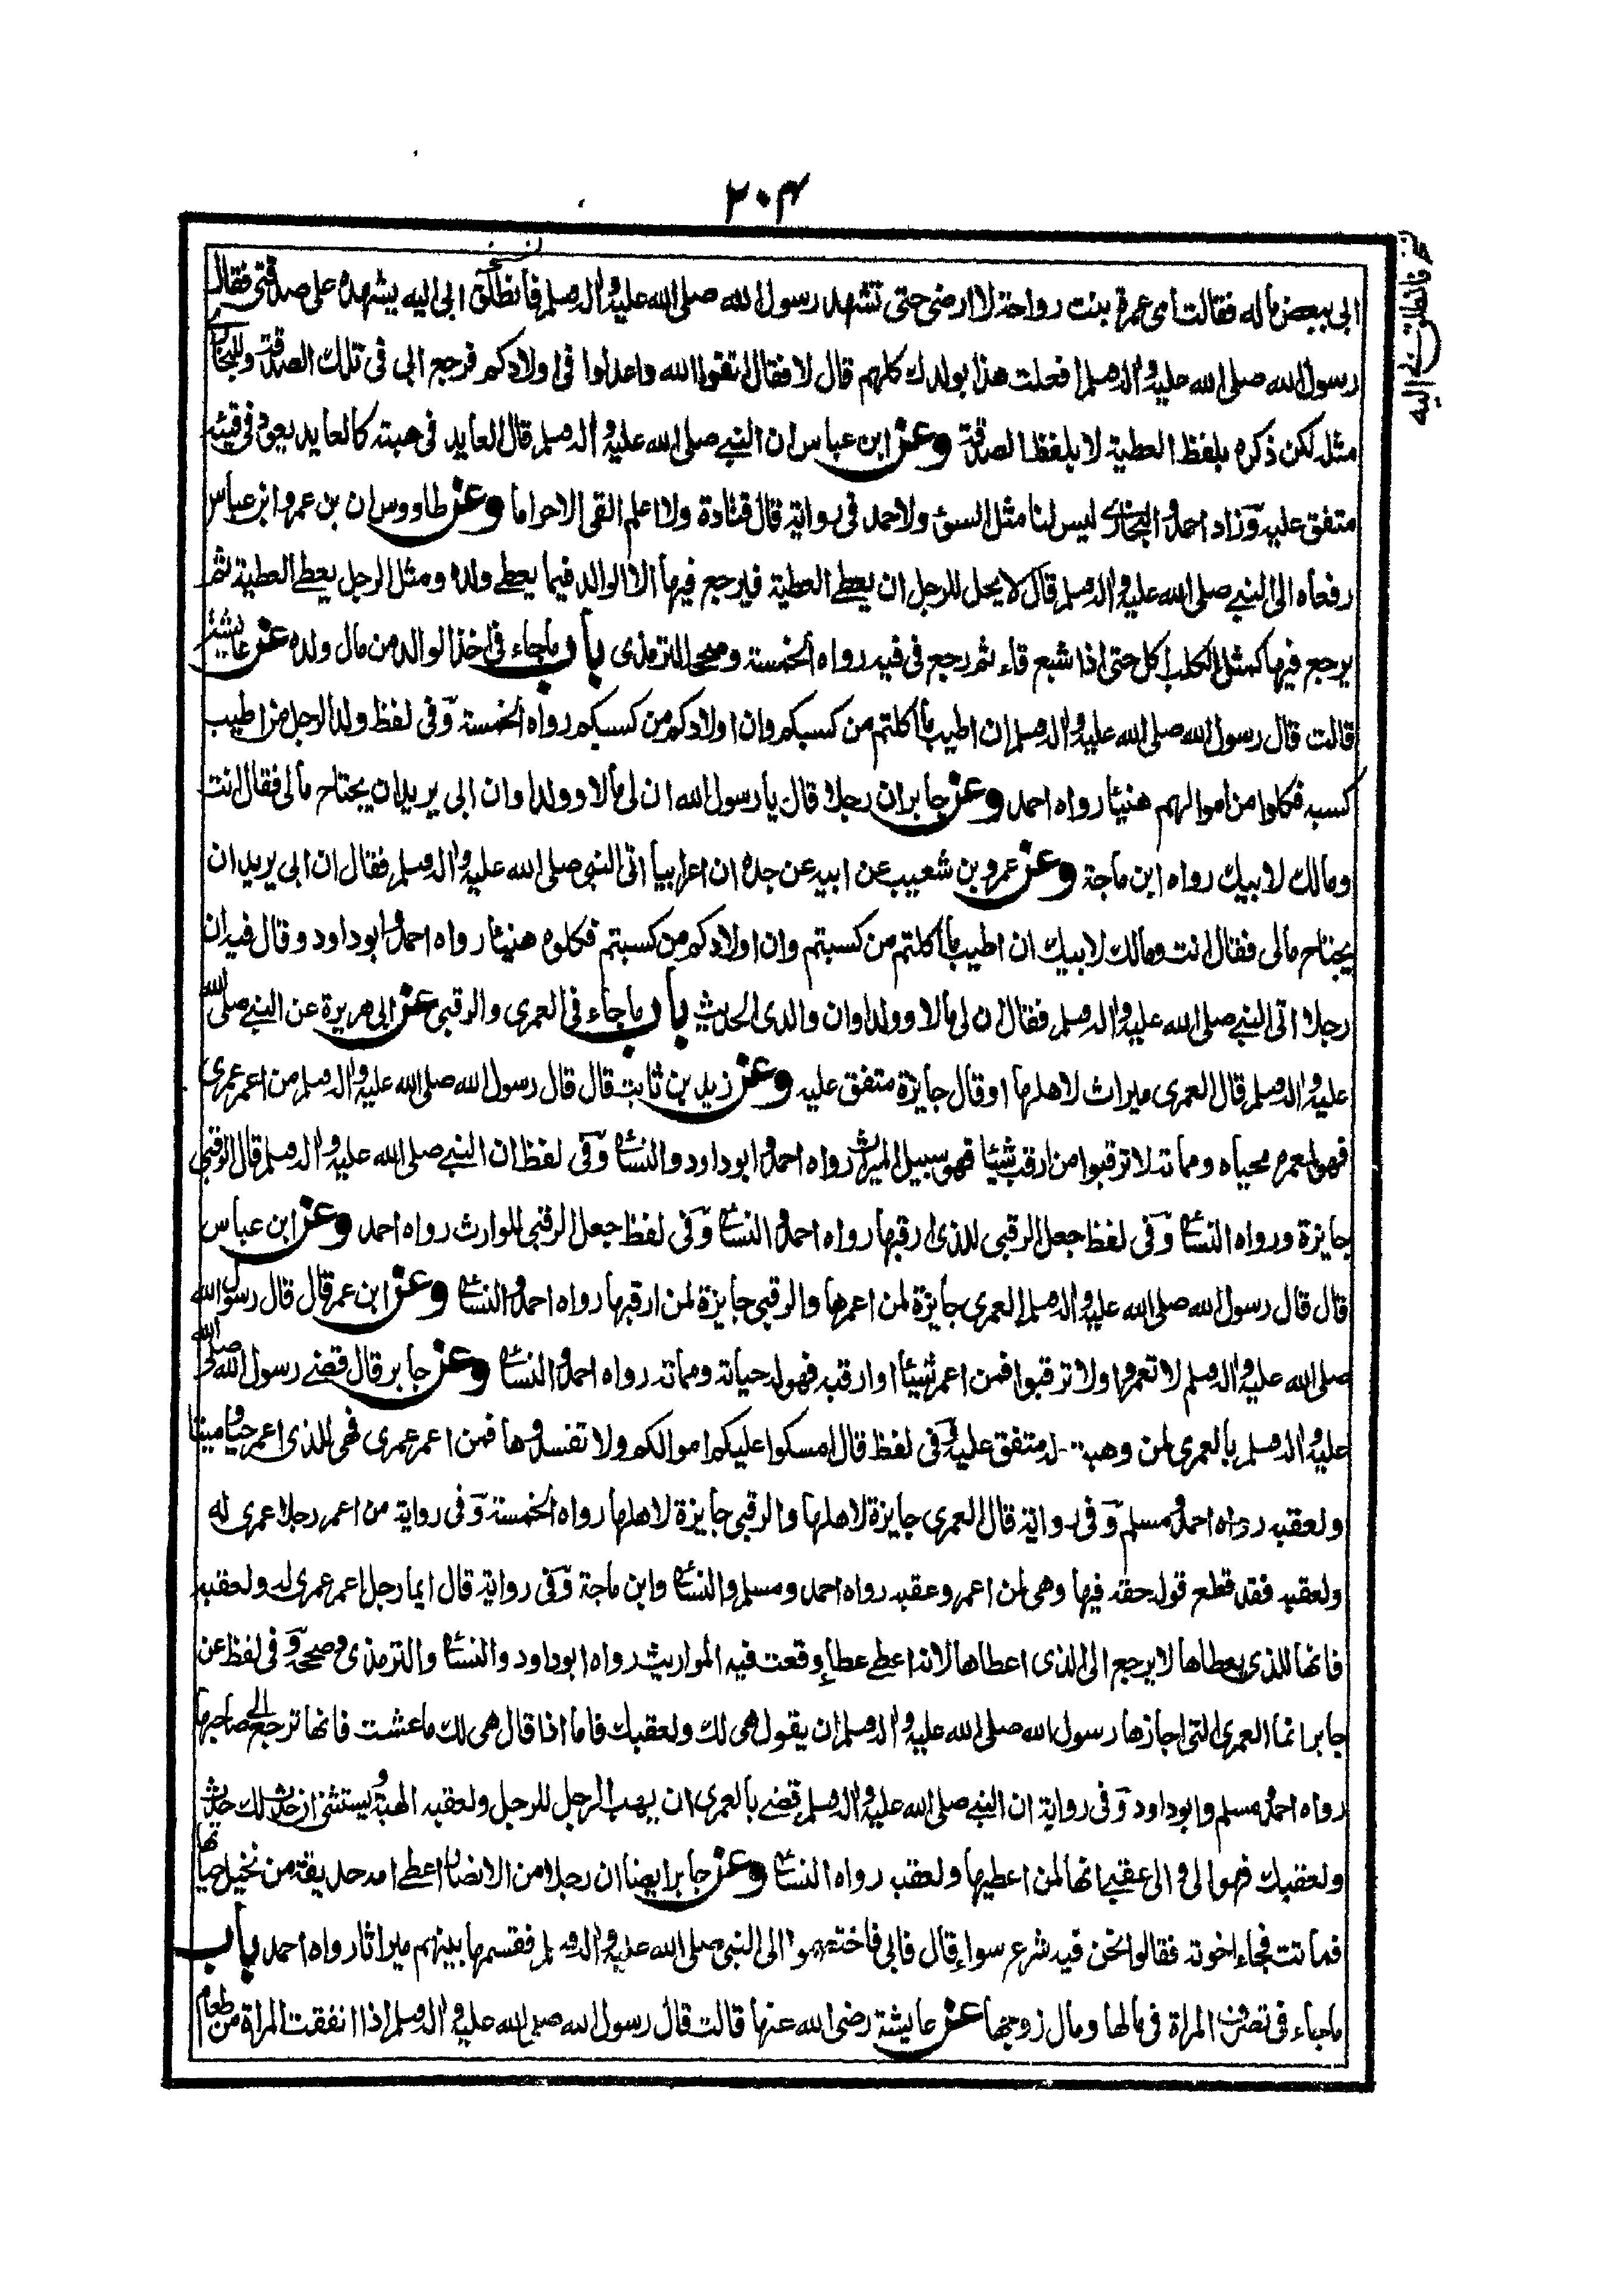 ٢٠٤
ابى ببعض ماله فقالت امى عمرة بنت رواحة لا ارضى حتى تشهد رسول الله صلى الله عليه واله وسلم فانطلق ابى اليه يشهده على صدقتى فقال
رسول الله صلى الله عليه واله وسلم افعلت هذا بولدك كلهم قال لا فقال اتقوا الله واعدلوا فى اولادكم فرجع ابى فى تلك الصدقة وللبخارى
مثله لكن ذكره بلفظ العطية لا بلفظ الصدقة وعن ابن عباس ان النبى صلى الله عليه واله وسلم قال العايد فى هبته كالعايد يعود فى قيئه
متفق عليه وزاد احمد والبخارى ليس لنا مثل السوء ولاحمد فى رواية قال قتادة ولا اعلم القى الا حراما وعن طاووس ان بن عمر وابن عباس
رفعاه الى النبى صلى الله عليه واله وسلم قال لا يحل للرجل ان يعطى العطية فيرجع فيها الا الوالد فيما يعطى ولده ومثل الرجل يعطى العطية ثم
يرجع فيها كمثل الكلب اكل حتى اذا شبع قاء ثم رجع فى قيه رواه الخمسة وصححه الترمذى باب ماجاء فى اخذ الوالد من مال ولده عن عايشة
قالت قال رسول الله صلى الله عليه واله وسلم ان اطيب ما اكلتم من كسبكم وان اولادكم من كسبكم رواه الخمسة وفى لفظ ولد الرجل من اطيب
كسبه فكلوا من اموالهم هنيئا رواه احمد وعن جابر ان رجلا قال يا رسول الله ان لى مالا وولدا وان ابى يريد ان يحتاح مالى فقال انت
ومالك لابيك رواه ابن ماجة وعن عمرو بن شعيب عن ابيه عن جده ان اعرابيا اتى النبى صلى الله عليه واله وسلم فقال ان ابى يريد ان
يجتاح مالى فقال انت ومالك لابيك ان اطيب ما اكلتم من كسبتم وان اولادكم من كسبتم فكلوه هنيئا رواه احمد وابو داود وقال فيه ان
رجلا اتى النبى صلى الله عليه واله وسلم فقال ان لى مالا وولدا وان والدى الحديث باب ماجاء فى العمرى والرقبى عن ابى هريرة عن النبى صلى الله
عليه واله وسلم قال العمرى ميراث لاهلها او قال جايزة متفق عليه وعن زيد بن ثابت قال قال رسول الله صلى الله عليه واله وسلم من اعمر عمرى
فهو لمعمره محياه ومماته لا ترقبوا من ارقب شيئا فهو سبيل الميراث رواه احمد وابو داود والنسائ وفى لفظ ان النبى صلى الله عليه واله وسلم قال الرقبى
جايزة ورواه النسائ وفى لفظ جعل الرقبى للذى ارقبها رواه احمد والنسائ وفى لفظ جعل الرقبى للوارث رواه احمد وعن ابن عباس
قال قال رسول الله صلى الله عليه واله وسلم العمرى جايزة لمن اعمرها والرقبى جايزة لمن ارقبها رواه احمد والنسائ وعن ابن عمر قال قال رسول الله
صلى الله عليه واله وسلم لا تعمروا ولا ترقبوا فمن اعمر شيئا او ارقبه فهو له حياته ومماته رواه احمد والنسائ وعن جابر قال قضى رسول الله صلى الله
عليه واله وسلم بالعمرى لمن وهبت له متفق عليه وفى لفظ قال امسكوا عليكم اموالكم ولا تفسدوها فمن اعمر عمرى فهى للذى اعمر حيا وميتا
ولعقبه رواه احمد ومسلم وفى رواية قال العمرى جايزة لاهلها والرقبى جايزة لاهلها رواه الخمسة وفى رواية من اعمر رجلا عمرى له
ولعقبه فقد قطع قوله حقه فيها وهى لمن اعمر وعقبه رواه احمد ومسلم والنسائ وابن ماجة وفى رواية قال ايما رجل اعمر عمرى له ولعقبه
فانها للذى يعطاها لا يرجع الى الذى اعطاها لانه اعطى عطاء وقعت فيه المواريث رواه ابو داود والنسائ والترمذى وصححه وفى لفظ عن
جابر انما العمرى التى اجازها رسول الله صلى الله عليه واله وسلم ان يقول هى لك ولعقبك فاما اذا قال هى لك ما عشت فانها ترجع الى صاحبها
رواه احمد ومسلم وابو داود وفى رواية ان النبى صلى الله عليه واله وسلم قضى بالعمرى ان يهب الرجل للرجل ولعقبه الهبة ويستثنى ان حدث لك حدث
ولعقبك فهو الى والى عقبى انها لمن اعطيها ولعقبه رواه النسائ وعن جابر ايضا ان رجلا من الانصار اعطى امه حديقة من نخيل حياتها
فماتت فجاء اخوته فقالوا نحن فيه شرع سواء قال فابى فاختصموا الى النبى صلى الله عليه واله وسلم فقسمها بينهم ميراثا رواه احمد باب
ماجاء فى تصرف المراة فى مالها ومال زوجها عن عايشة رضى الله عنها قالت قال رسول الله صلى الله عليه واله وسلم اذا انفقت المراة من طعام